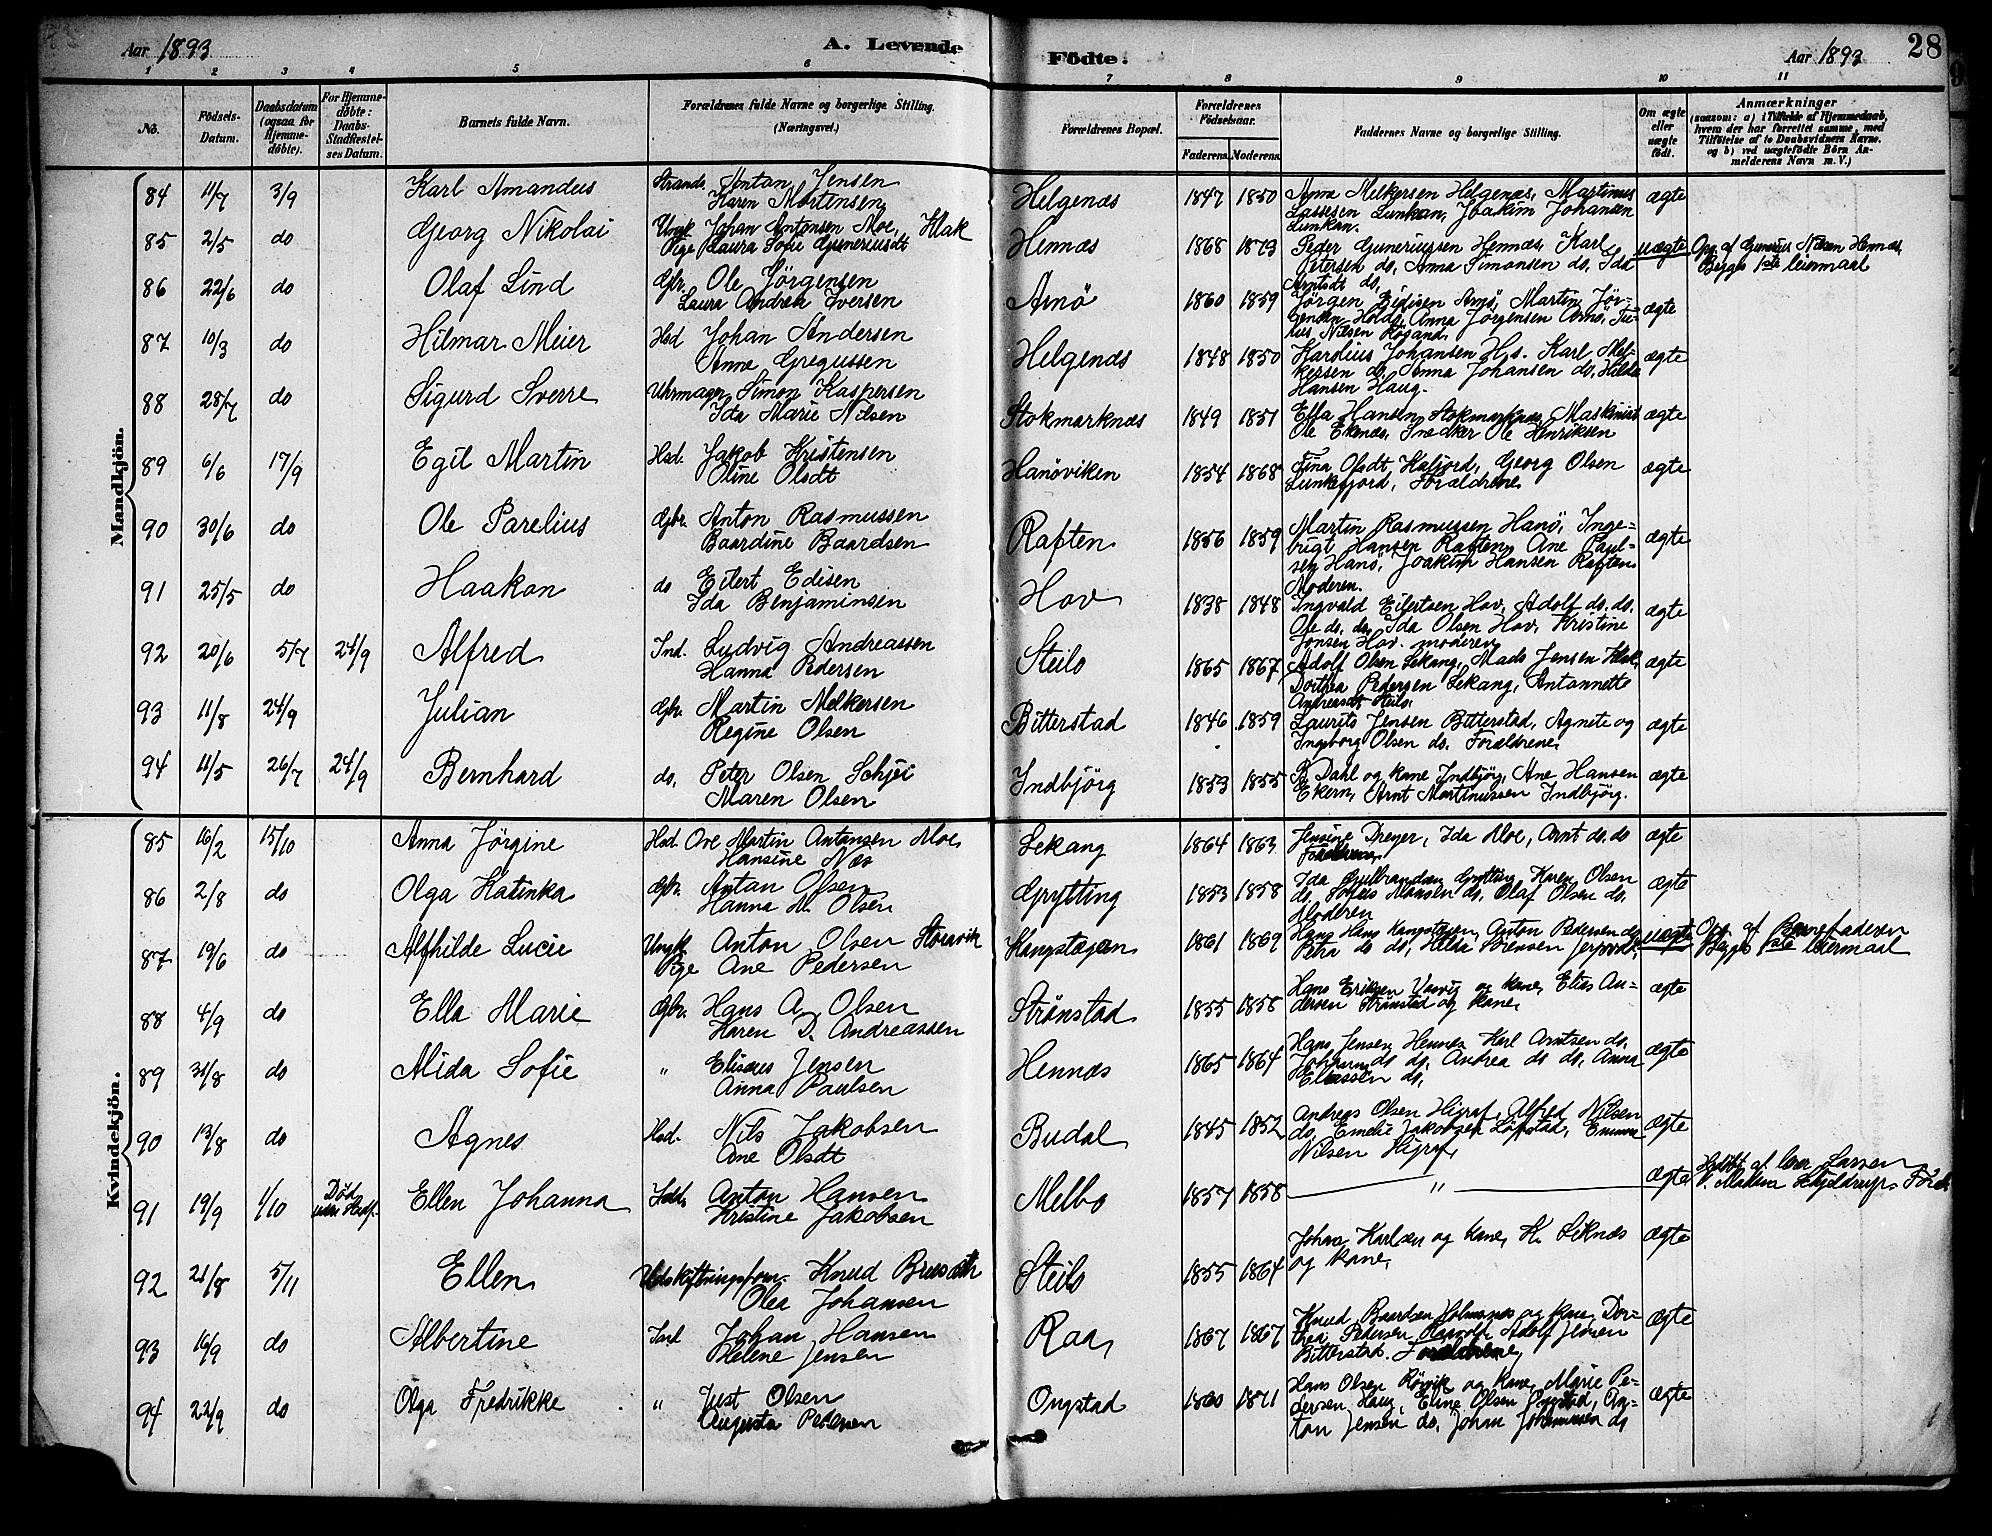 Aar 1893
A. Levende
Födte.
Aar 1893
28
1 2 3 4 5 6 7 8 9 10 11
No.
Födsels-Datum.
Daabsdatum (ogsaa for Hjemme-döbte).
For Hjemme-döbte: Daabs-Stadfæstel-ses Datum.
Barnets fulde Navn.
Forældrenes fulde Navne og borgerlige Stilling.
(Næringsvei.)
Forældrenes Bopæl.
Forældrenes Födselsaar.
Faderens. Moderens.
Faddernes Navne og borgerlige Stilling.
Om ægte eller uægte födt.
Anmærkninger
(saasom: a) i Tilfælde af Hjemmedaab, hvem der har forrettet samme, med Tilföielse af to Daabsvidners Navne. og b) ved uægtefödte Börn An-melderens Navn m. V.)
Mandkjön.
84 11/7 3/9 Karl Amandus Strands. Anton Jensen Helgenæs 1847 1850 Anne Melkersen Helgenæs, Martinus ægte
Karen Mortensen Lassesen Lunkan, Joakim Johansen
Lunkan.
85 2/5 do Georg Nikolai Ungk Johan Antonsen Moe, Klak Hennæs 1868 1873 Peder Guneriussen Hennæs, Karl uægte Opg. af Gunerius Nilsen Hennæs,
Pige Laura Sofie Guneriusdt Petersen do, Anna Simonsen do, Ida Begges 1ste leiermaal
Arntsdt do,
86 22/6 do Olaf Lind Gbr. Ole Jörgensen Arnö 1860 1859 Jörgen Edisen Arnö, Martin Jör- ægte
Laura Andrea Iversen gensen Holdö, Anna Jörgensen Arnö,
Nilsen
87 10/3 do Hilmar Meier Hsd Johan Andersen Helgenæs 1848 1850 Kardius Johansen H.s. Karl Mel- ægte
Anne Gregussen kersen do, Anna Johansen do, Hilda
Hansen Haug.
88 28/7 do Sigurd Sverre Uhrmager Simon Kaspersen Stokmarknæs 1849 1851 Ella Hansen Stokmarknæs, Maskinist ægte
Ida Marie Nilsen Ole Ekenæs, Snedker Ole Henriksen
89 6/6 17/9 Egil Martin Hsd. Jakob Kristensen Hanöviken 1854 1868 Fina Olsdt Kaljord, Georg Olsen ægte
Oline Olsdt Lunkefjord, Forældrene
90 30/6 do Ole Parelius Gbr. Anton Rasmussen Raften 1856 1859 Martin Rasmussen Hanö, Inge- ægte
Baardine Baardsen brigt Hansen Raften, Ane Paul-
sen Hanö, Joakim Hansen Raften
Moderen.
91 25/5 do Haakon do Eilert Edisen Hov 1838 1848 Ingvald Eilertsen Hov, Adolf do. do. ægte
Ida Benjaminsen Ole do. do, Ida Olsen Hov, Kristine
Jonsen Hov. moderen
92 20/6 5/7 24/9 Alfred Ind. Ludvig Andreassen Steilo 1865 1867 Adolf Olsen Lekang, Mads Jensen Klak, ægte
Hanna Pedersen Dorthea Pedersen Lekang, Antonnette
Andreasdt Steilo.
93 11/8 24/9 Julian Gbr. Martin Melkersen Bitterstad 1846 1859 Laurits Jensen Bitterstad, Agnete og ægte
Regine Olsen Ingeborg Olsen do. Forældrene
94 11/5 26/7 24/9 Bernhard do. Peter Olsen Schjei Indbjörg 1853 1855 P. Dahl og kone Indbjörg, Ane Hansen ægte
Maren Olsen Ekern, Arnt Martinussen Indbjörg.
Kvindekjön.
85 16/2 15/10 Anna Jörgine Hsd. Ove Martin Antonsen Moe, Lekang 1864 1863 Jensine Dreyer, Ida Moe, Arnt do. do ægte
Hansine Næs Forældrene
86 2/8 do Olga Katinka Gbr. Antan Olsen Grytting 1853 1858 Ida Gulbrandsen Grytting, Karen Olsen ægte
Hanna M. Olsen do, Hansen do, Olaf Olsen do,
Moderen
87 19/6 do Alfhilde Lucie Ungk. Anton Olsen Storvik 1861 1869 Hans Anton Pedersen do uægte Opg. af Barnefaderen
Pige Ane Pedersen Petra do do, Hilda Sörensen Begges 1ste leiermaal
88 4/9 do Ella Marie Gbr. Hans A. Olsen Strönstad 1855 1858 Hans Eriksen og kone, Elias An- ægte
Karen D. Andreassen dersen Strönstad og kone,
89 31/8 do Alida Sofie " Elisæus Jensen Hennæs 1865 1864 Hans Jensen Hennes Karl Arntsen do, ægte
Anna Paulsen do do, Andrea do do, Anna
Eliassen do,
90 13/8 do Agnes Hsd. Nils Jakobsen Budal 1845 1852 Andreas Olsen Higraf, Alfred Nilsen ægte
Ane Olsdt do, Emelie Jakobsen Emma
Nilsen Higraf,
91 19/9 1/10 Död uden Stadf. Ellen Johanna Anton Hansen Melbo 1857 1858 " ægte af Larsen
Kristine Jakobsen V. Madam
92 21/8 5/11 Ellen Udskiftningsform. Knud Steilo 1855 1864 Johan Karlsen og kone, K. Leknæs ægte
Olea Johansen og kone,
93 16/9 do Albertine Ind Johan Hansen Raa, 1867 1867 Knud Baardsen og kone, Dor- ægte
Helene Jensen thea Pedersen Adolf Jensen
Bitterstad. Forældrene,
94 22/9 do Olga Fredrikke " Just Olsen Ongstad 1860 1871 Hans Olsen og kone, Marie Pe- ægte
Augusta Pedersen dersen Haug, Eline Olsen Ongstad, An-
ton Jensen do, Johan Johannesen do